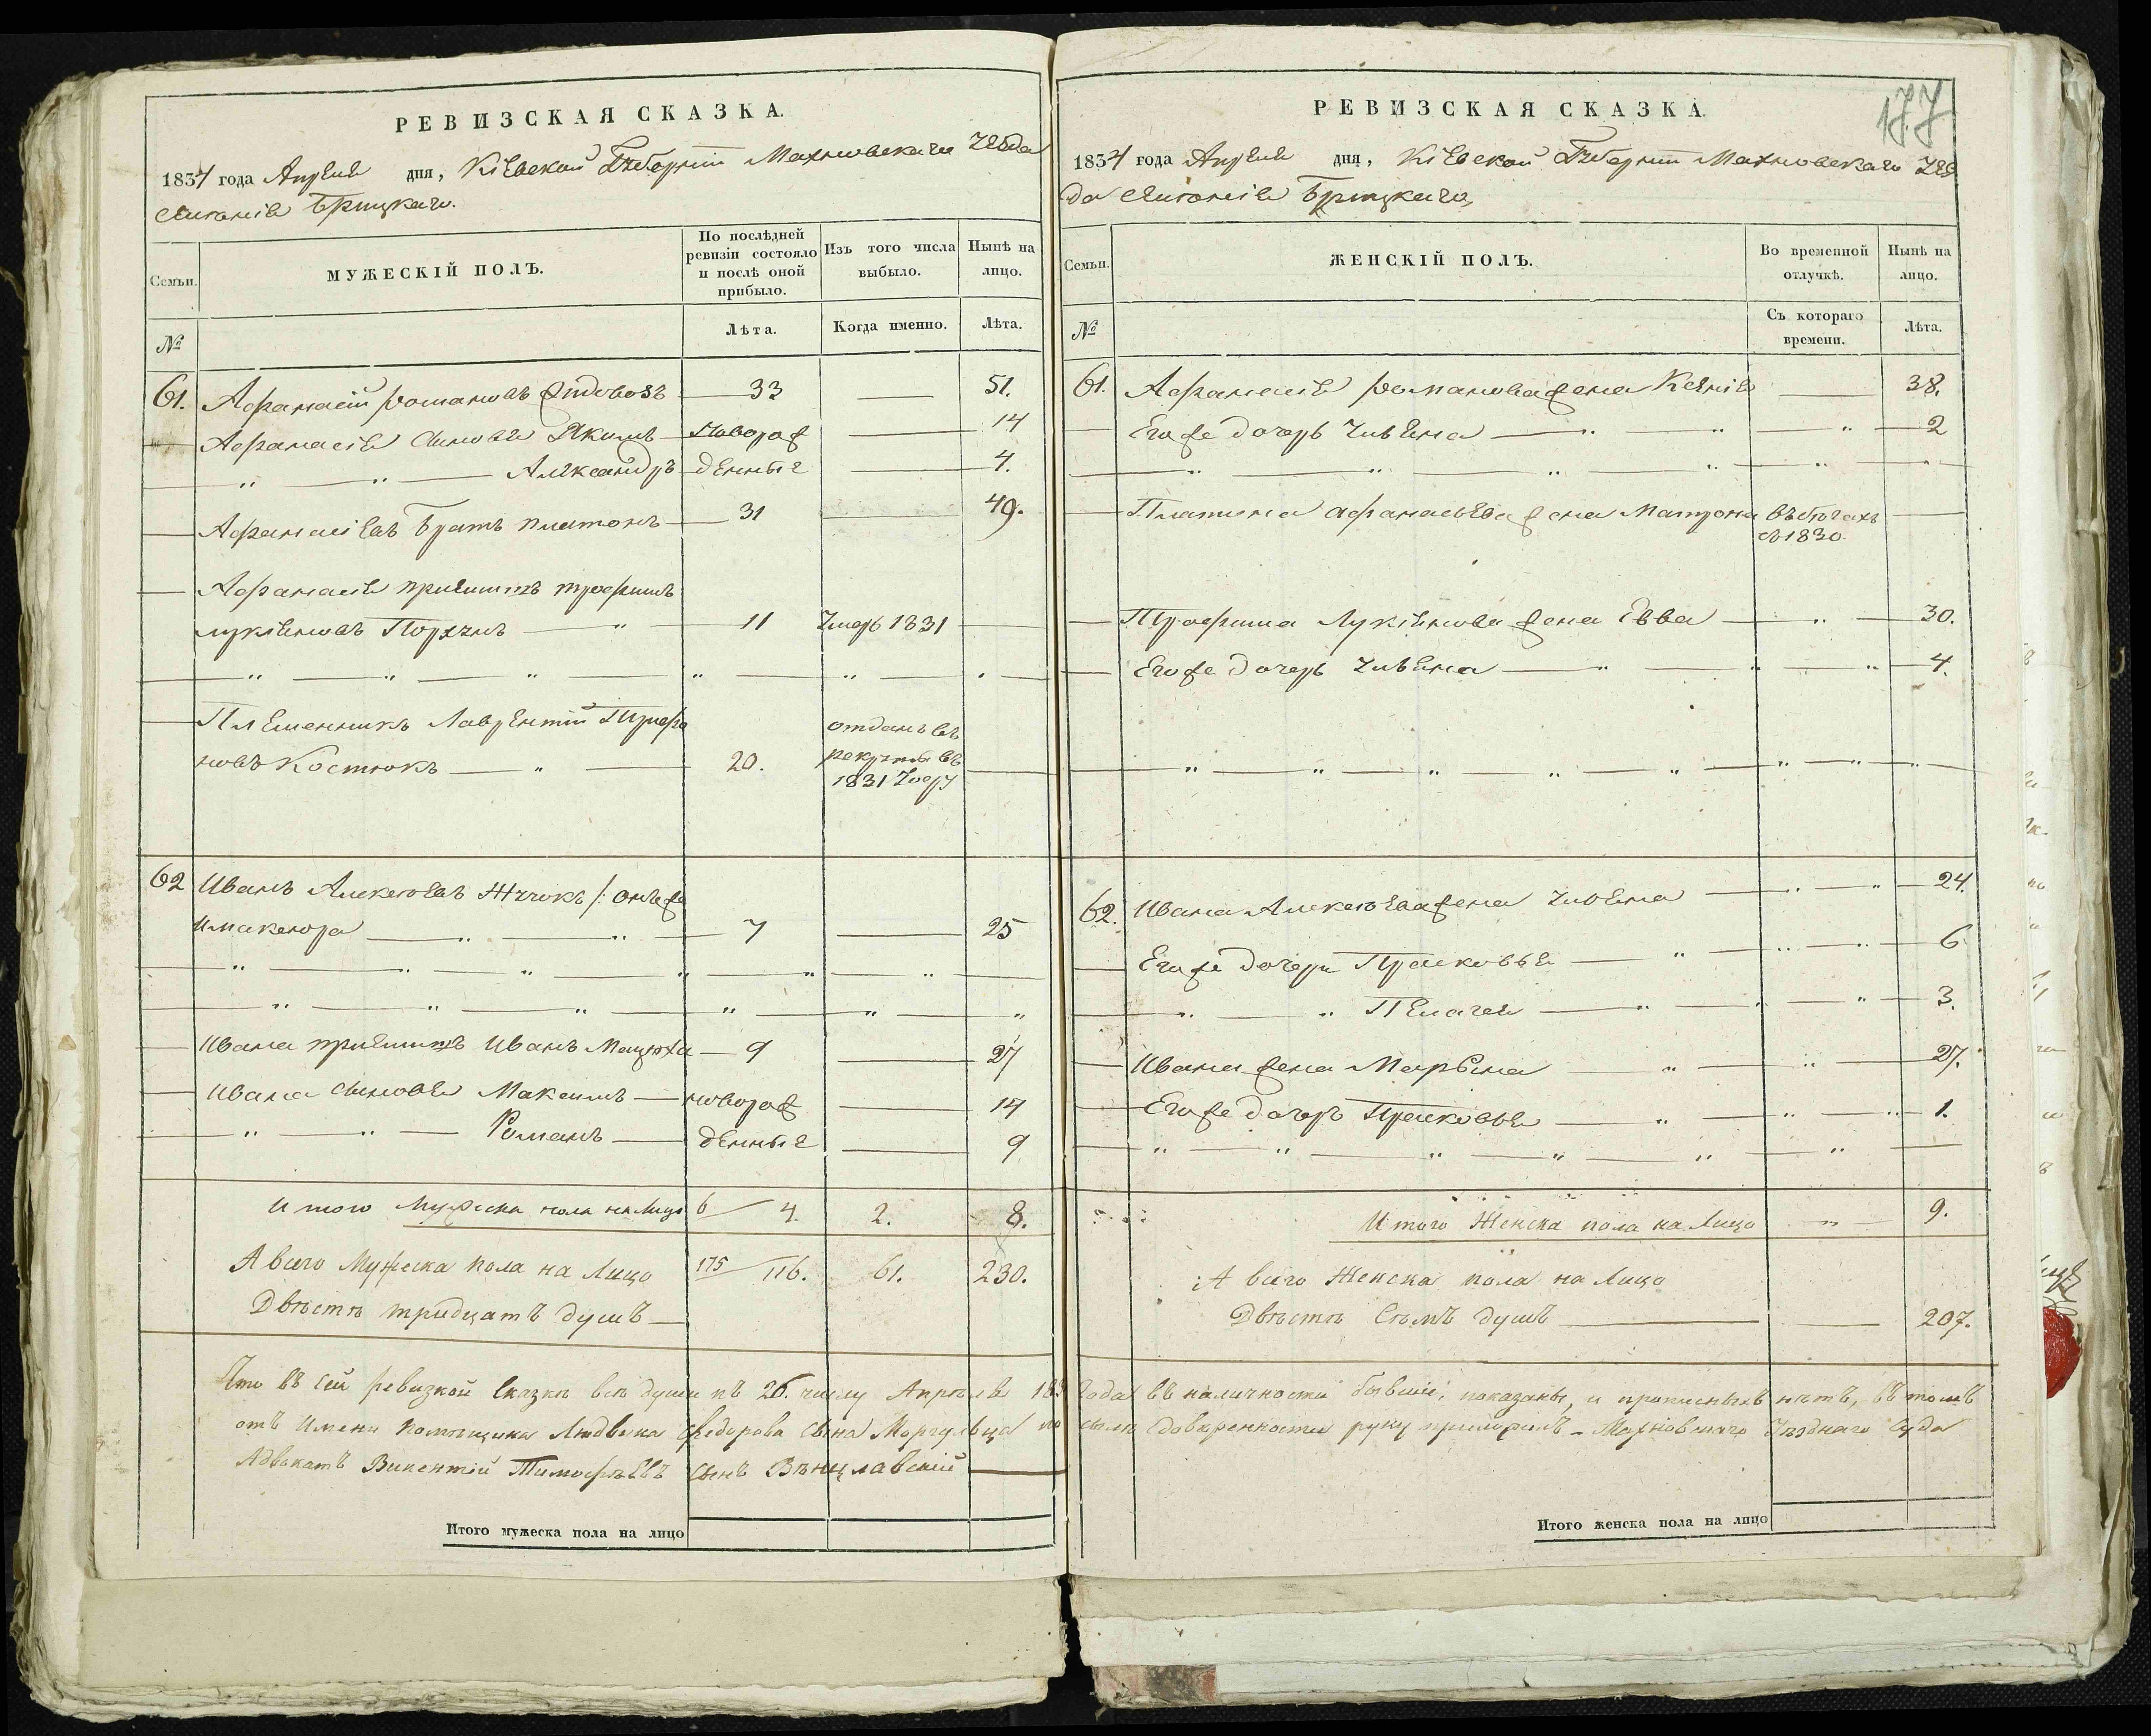 РЕВИЗСКАЯ СКАЗКА.
1834 года Апреля дня, Кіевской Губерніи Махновскаго Уезда
РЕВИЗСКАЯ СКАЗКА.
177
1834 года Апреля дня, Кіевской Губерніи Махновскаго Уез
да
Семьи.
МУЖЕСКІЙ ПОЛЪ.
По послѣдней ревизіи состояло и послѣ оной прибыло.
Изъ того числа выбыло.
Нынѣ на лицо.
№
Лѣта.
Когда именно.
Лѣта.
61. Афанасій Романовъ 33 — 51.
Афанасія Сыновья Якимъ Новорож — 14
" " Александръ денныя — 4.
Афанасіевъ братъ Платонъ 31 — 49.
Афанасія приемышъ Трофимъ
Лукіяновъ 11 Умеръ 1831 —
Племенникъ Лаврентій
новъ Костюкъ — " — 20. отданъ въ рекруты въ 1831 году —
62 Иванъ Алексеевъ Жучокъ /: онъ же
7 — 25
Ивана приемышъ Иванъ 9 — 27
Ивана Сыновья Максимъ новорож — 14
" " Романъ денныя — 9
Итого Мужеска пола на лицо 6 / 4. 2. 8.
А всего Мужеска пола на Лицо 175 / 116. 61. 230.
Двѣстѣ тридцатъ душъ
Семьи.
ЖЕНСКІЙ ПОЛЪ.
Во временной отлучкѣ.
Нынѣ на лицо.
№
Съ котораго времени.
Лѣта.
61. Афанасія Романова жена Ксенія — 38.
Его же дочерь Ульяна — " — 2
Платона Афанасьева жена Матрона въ бегахъ —
съ 1830.
Трофима Лукіянова жена Евва — " — 30.
Его же дочерь Ульяна — " — 4.
62. Ивана Алексеева жена Ульяна — " — 24.
Его же дочери Прасковья — " — 6
" " Пелагея — " — 3.
Ивана жена Марьяна — " — 27.
Его же дочерь Прасковья — " — 1.
Итого Женска пола на Лицо — " — 9.
А всего Женска пола на Лицо
Двѣстѣ Сѣмъ душъ — 207.
Что въ сей ревизкой Сказкѣ всѣ души къ 26. числу Апрѣля 183 года въ наличности бывшіе, показаны, и прописныхъ нѣтъ, въ томъ
отъ имени помѣщика Людвика Федорова Сына по силѣ довѣренности руку приложилъ — Махновскаго Уѣзднаго Суда
Адвокатъ Викентій Тимофѣевъ Сынъ Вѣнцлавскій
Итого мужеска пола на лицо
Итого женска пола на лицо